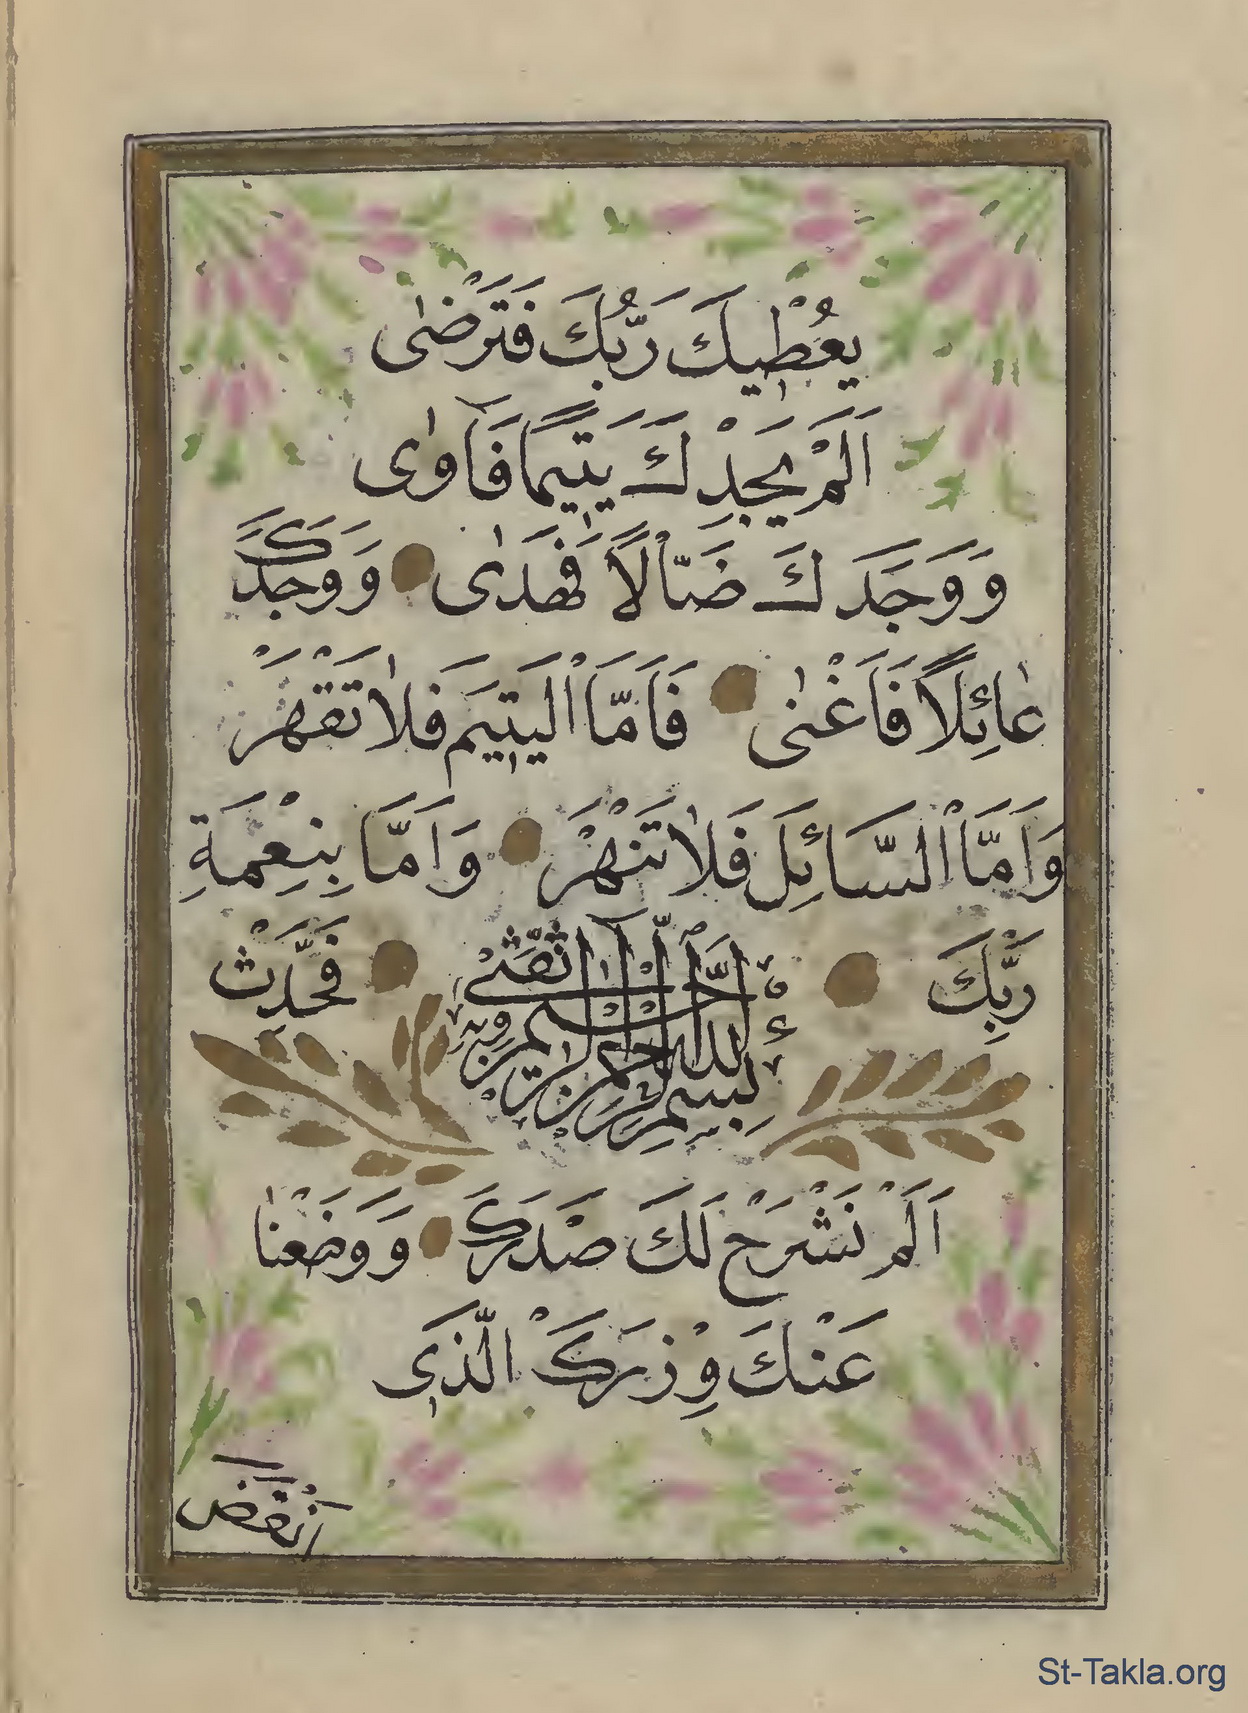 يُعْطِيكَ رَبُّكَ فَتَرْضٰى
اَلَمْ يَجِدْكَ يَتِيمًا فَآوٰى
وَوَجَدَكَ ضَآلًّا فَهَدٰى وَوَجَدَكَ
عٰائِلًا فَاَغْنٰى فَاَمَّا الْيَتِيمَ فَلٰا تَقْهَرْ
وَاَمَّا السَّائِلَ فَلٰا تَنْهَرْ وَاَمَّا بِنِعْمَةِ
رَبِّكَ فَحَدِّثْ
بِسْمِ اللّٰهِ الرَّحْمٰنِ الرَّحِيمِ
اَلَمْ نَشْرَحْ لَكَ صَدْرَكَ وَوَضَعْنٰا
عَنْكَ وِزْرَكَ الَّذِى
اَنْقَضَ
St-Takla.org